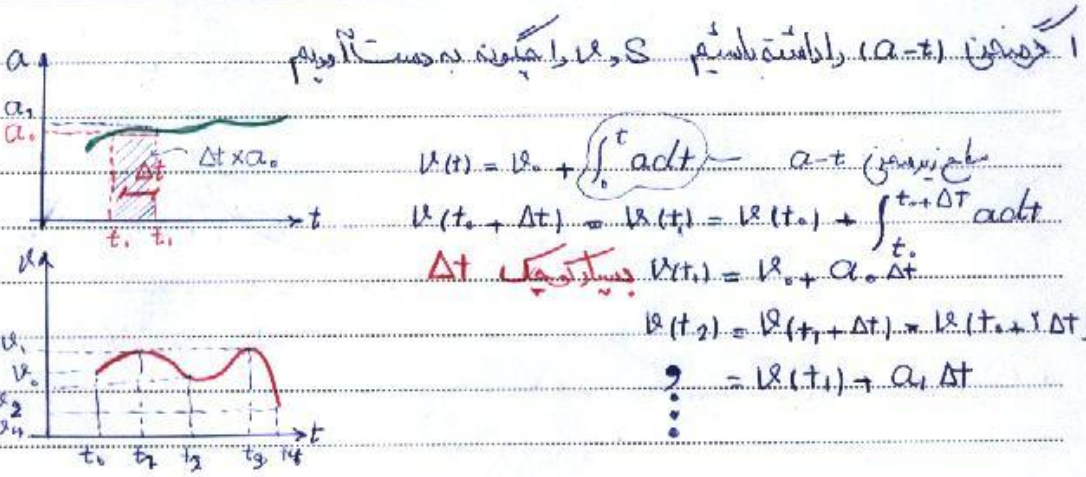 اگر منحنی (a-t) را داشته باشیم S و v را چگونه به دست آوریم
a
a₁
a₀
Δt×a₀
Δt
t₀ t₁
t
v(t) = v₀ + ∫₀ᵗ adt — سطح زیر منحنی a-t
v(t₀ + Δt) = v(t₁) = v(t₀) + ∫ₜ₀^(t₀+ΔT) adt
Δt بسیار کوچک v(t₁) = v₀ + a₀ Δt
v(t₂) = v(t₁ + Δt) = v(t₀ + ۲Δt)
= v(t₁) + a₁ Δt
v
v₁
v₀
v₂
v₄
t₀ t₁ t₂ t₃ t₄
t